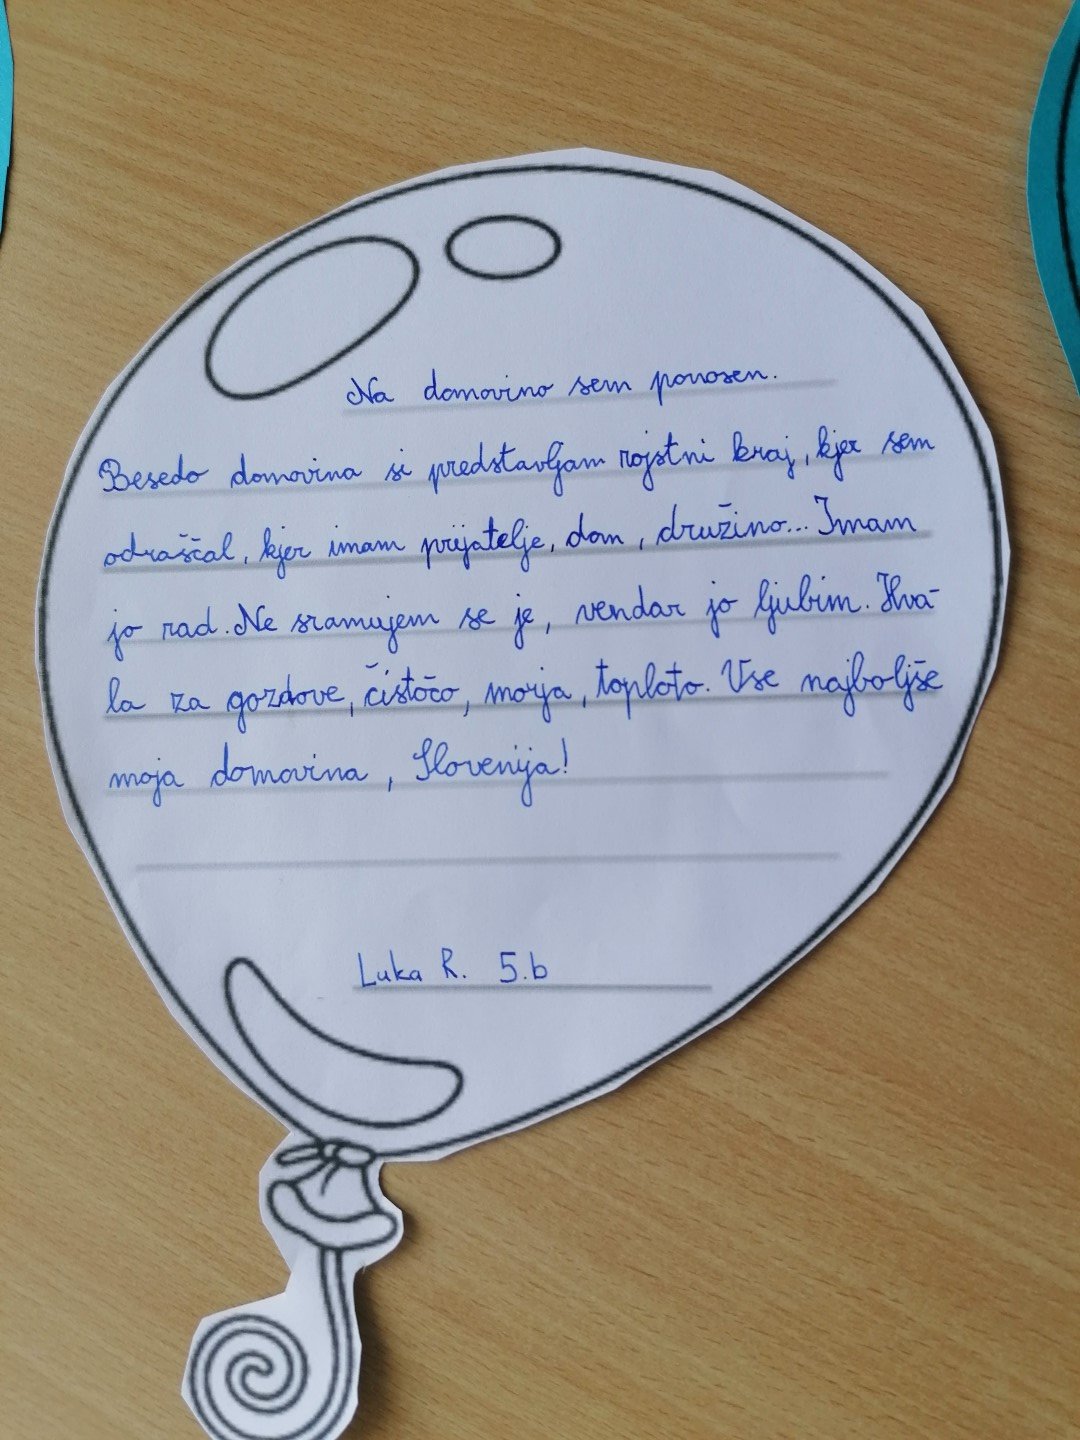 Na domovino sem ponosen.
Besedo domovina si predstavljam rojstni kraj, kjer sem
odraščal, kjer imam prijatelje, dom, družino... Imam
jo rad. Ne sramujem se je, vendar jo ljubim. Hva-
la za gozdove, čistočo, morja, toploto. Vse najboljše
moja domovina, Slovenija!
Luka R. 5.b